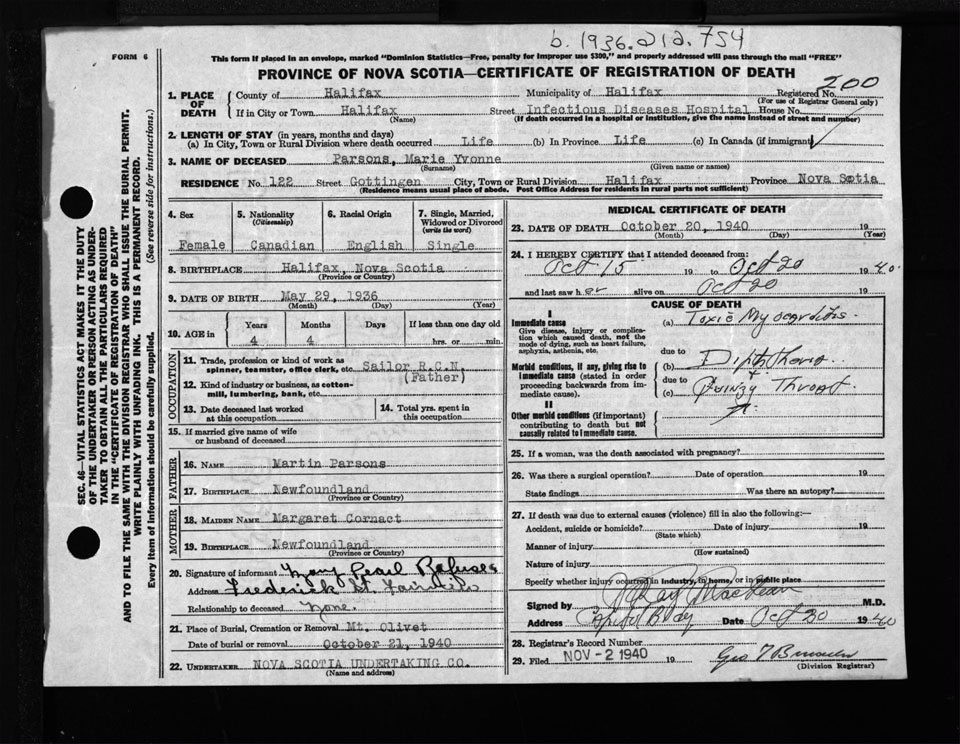 b. 1936.212.754
FORM 6
This form if placed in an envelope, marked "Dominion Statistics—Free, penalty for improper use $300," and properly addressed will pass through the mail "FREE"
PROVINCE OF NOVA SCOTIA—CERTIFICATE OF REGISTRATION OF DEATH
200
1. PLACE OF DEATH
County of Halifax Municipality of Halifax Registered No.
(For use of Registrar General only)
If in City or Town Halifax Street Infectious Diseases Hospital House No.
(Name) (If death occurred in a hospital or institution, give the name instead of street and number)
2. LENGTH OF STAY (in years, months and days)
(a) In City, Town or Rural Division where death occurred Life (b) In Province Life (c) In Canada (if immigrant)
3. NAME OF DECEASED Parsons, Marie Yvonne
(Surname) (Given name or names)
RESIDENCE No. 122 Street Gottingen City, Town or Rural Division Halifax Province Nova Scotia
(Residence means usual place of abode. Post Office Address for residents in rural parts not sufficient)
4. Sex 5. Nationality 6. Racial Origin 7. Single, Married, Widowed or Divorced
(Citizenship) (write the word)
Female Canadian English Single
8. BIRTHPLACE Halifax, Nova Scotia
(Province or Country)
9. DATE OF BIRTH May 29, 1936
(Month) (Day) (Year)
10. AGE in Years Months Days If less than one day old
4 4 hrs. or min.
OCCUPATION
11. Trade, profession or kind of work as spinner, teamster, office clerk, etc. Sailor R.C.N.
(Father)
12. Kind of industry or business, as cotton-mill, lumbering, bank, etc.
13. Date deceased last worked at this occupation
14. Total yrs. spent in this occupation
15. If married give name of wife or husband of deceased
FATHER
16. NAME Martin Parsons
17. BIRTHPLACE Newfoundland
(Province or Country)
MOTHER
18. MAIDEN NAME Margaret Cornact
19. BIRTHPLACE Newfoundland
(Province or Country)
20. Signature of informant Mary Pearl Refuses
Address Frederick St.
Relationship to deceased None.
21. Place of Burial, Cremation or Removal Mt. Olivet
Date of burial or removal October 21, 1940
22. UNDERTAKER NOVA SCOTIA UNDERTAKING CO.
(Name and address)
MEDICAL CERTIFICATE OF DEATH
23. DATE OF DEATH October 20, 1940
(Month) (Day) (Year)
24. I HEREBY CERTIFY that I attended deceased from:
Oct 15 19 to Oct 20 1940
and last saw her alive on Oct 20 19
CAUSE OF DEATH
I
Immediate cause (a) Toxic Myocarditis.
Give disease, injury or complication which caused death, not the mode of dying, such as heart failure, asphyxia, asthenia, etc.
due to
Morbid conditions, if any, giving rise to immediate cause (stated in order proceeding backwards from immediate cause).
(b) Diphtheria
due to
(c) Quinzy Throat
II
Other morbid conditions (if important) contributing to death but not causally related to immediate cause.
25. If a woman, was the death associated with pregnancy?
26. Was there a surgical operation? Date of operation 19
State findings Was there an autopsy?
27. If death was due to external causes (violence) fill in also the following:—
Accident, suicide or homicide? Date of injury 19
(State which)
Manner of injury
(How sustained)
Nature of injury
Specify whether injury occurred in industry, in home, or in public place
Signed by M.D.
Address Date Oct 20 1940
28. Registrar's Record Number
29. Filed NOV -2 1940 19
(Division Registrar)
SEC. 46—VITAL STATISTICS ACT MAKES IT THE DUTY
OF THE UNDERTAKER OR PERSON ACTING AS UNDER-
TAKER TO OBTAIN ALL THE PARTICULARS REQUIRED
IN THE "CERTIFICATE OF REGISTRATION OF DEATH"
AND TO FILE THE SAME WITH THE DIVISION REGISTRAR WHO SHALL ISSUE THE BURIAL PERMIT.
WRITE PLAINLY WITH UNFADING INK. THIS IS A PERMANENT RECORD.
Every item of information should be carefully supplied. (See reverse side for instructions.)